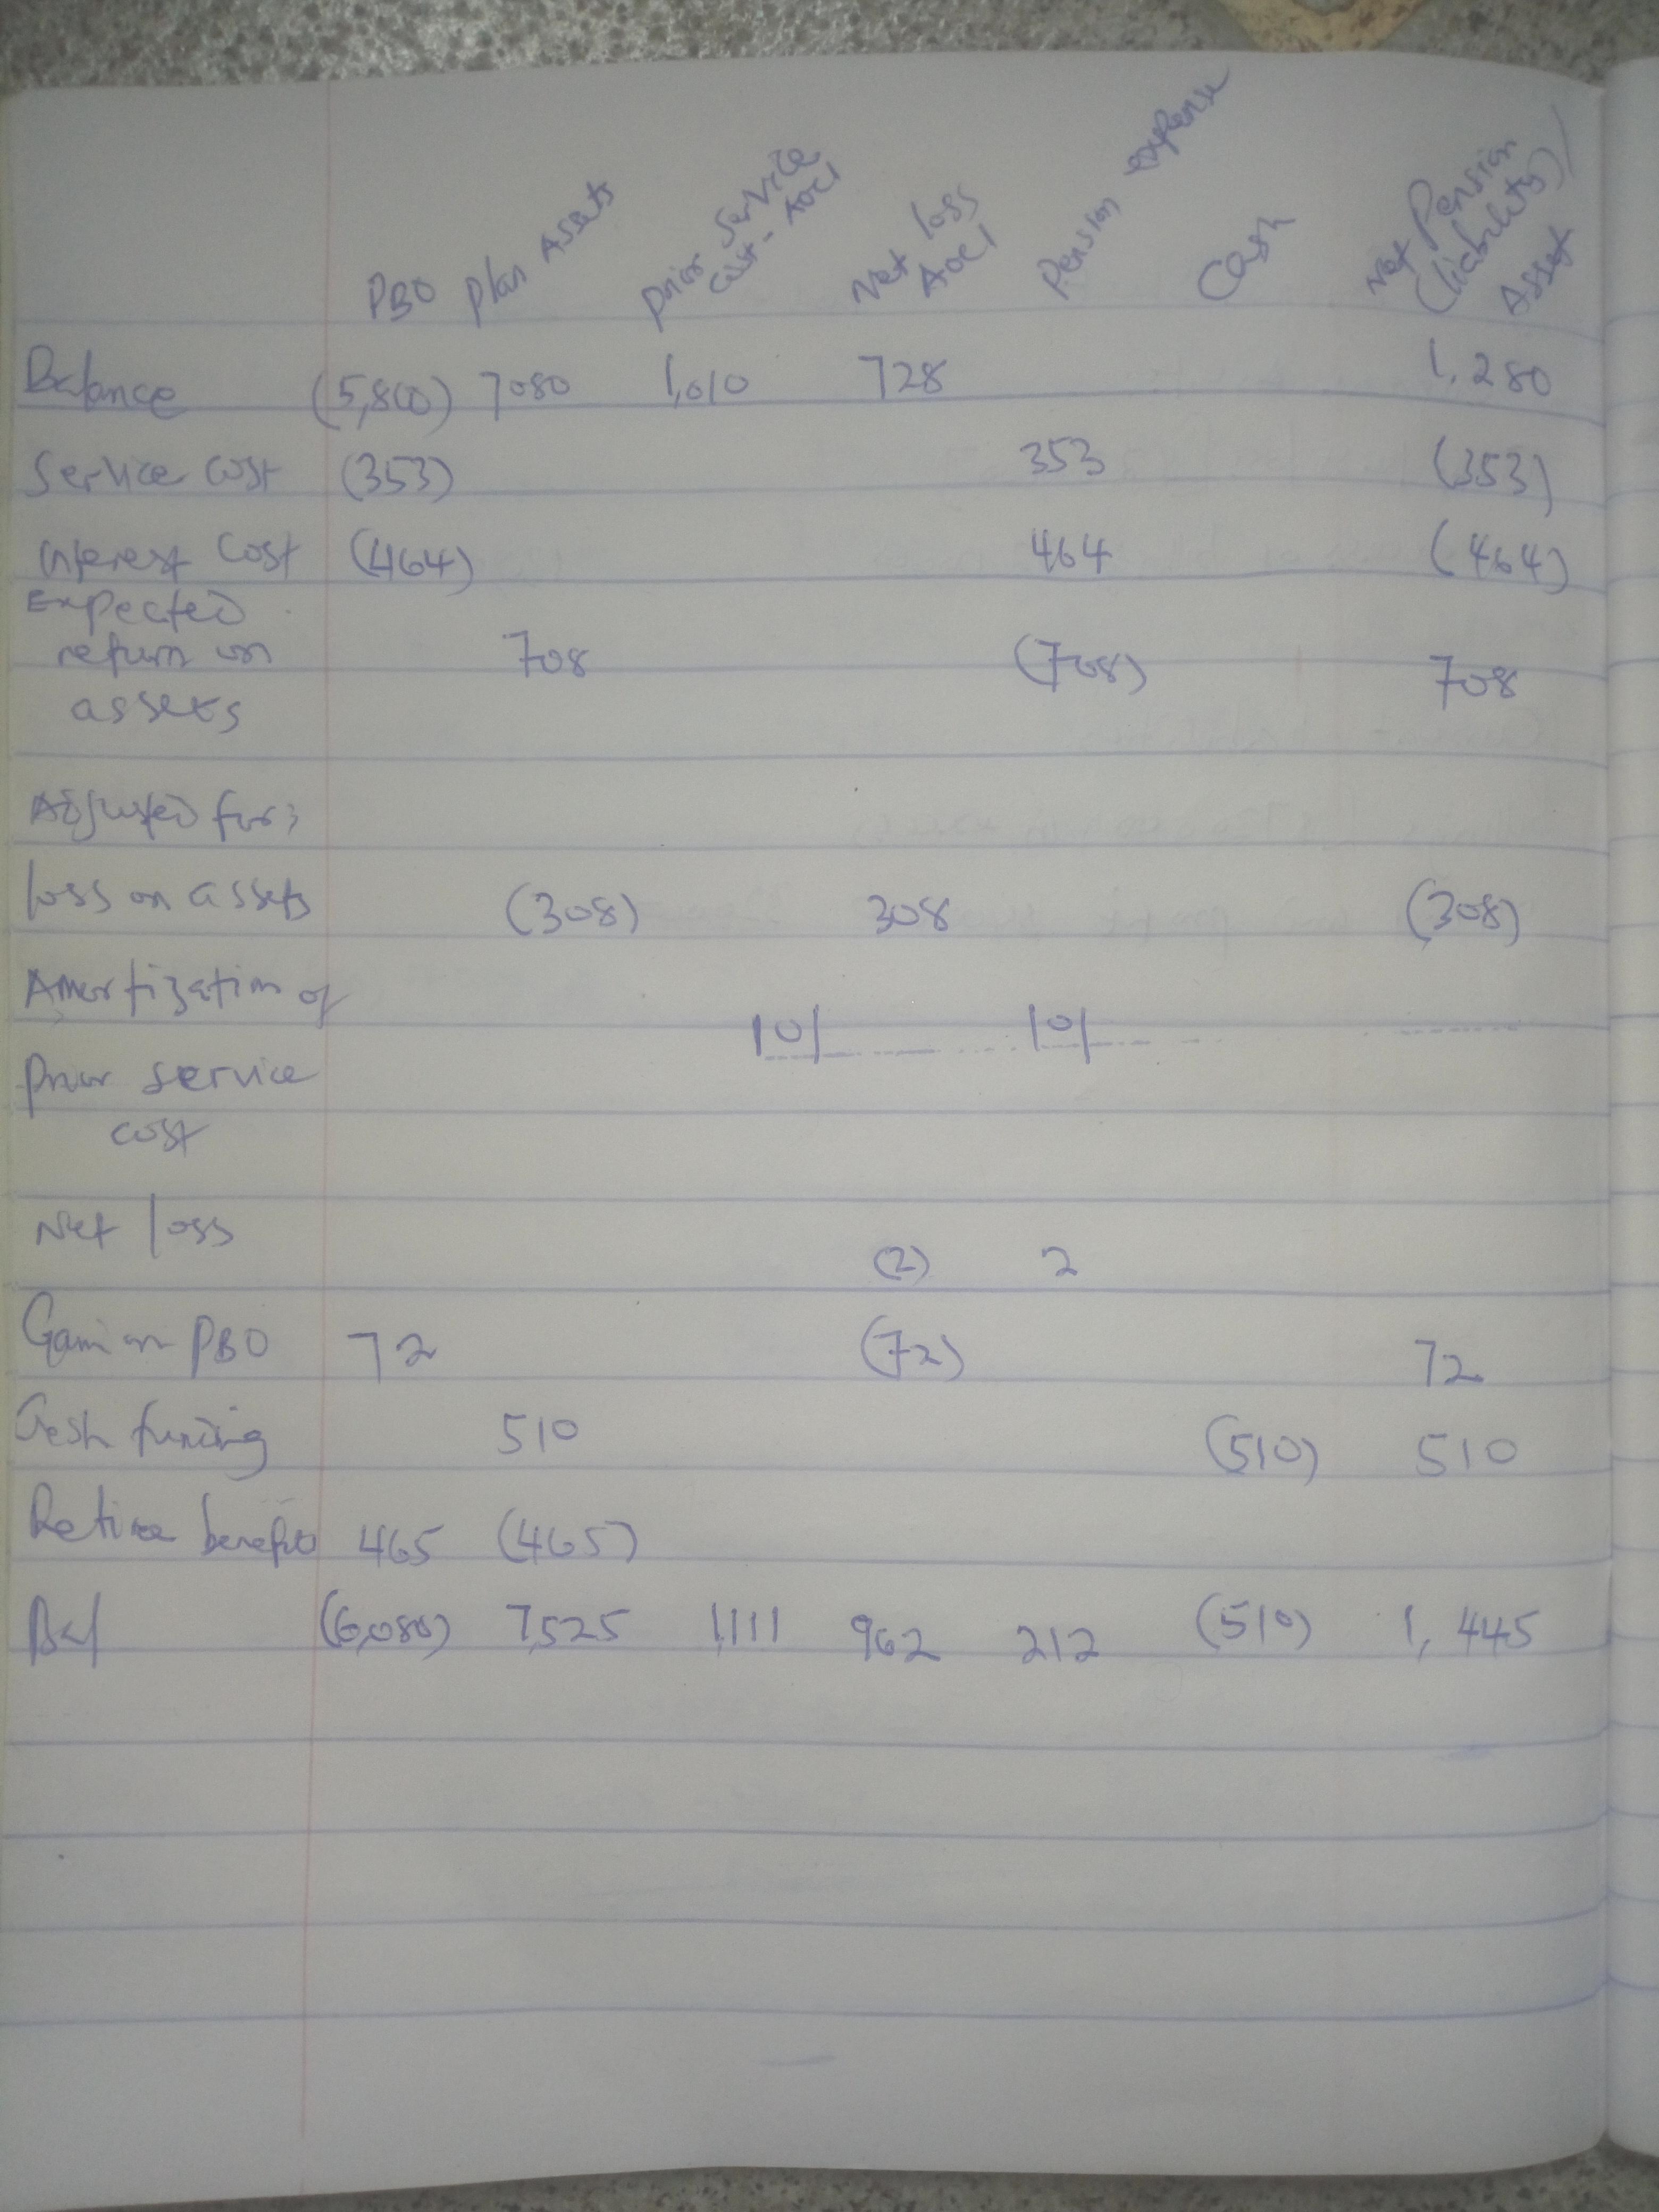 PBO Plan Assets Prior Service Cost - AOCI Net loss AOCI Pension expense Cash Net Pension (liability)/ Asset
Balance (5,800) 7080 1,010 728 1,280
Service cost (353) 353 (353)
Interest cost (464) 464 (464)
Expected
return on 708 (708) 708
assets
Adjusted for;
loss on assets (308) 308 (308)
Amortization of
101 101
Prior service
cost
Net loss
(2) 2
Gain on PBO 72 (72) 72
Cash funding 510 (510) 510
Retiree benefits 465 (465)
Bal (6,080) 7,525 1,111 962 212 (510) 1,445